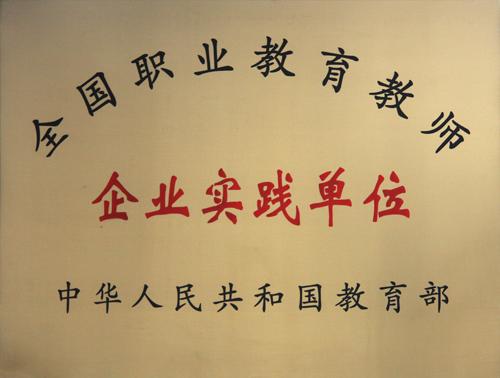 全国职业教育教师
企业实践单位
中华人民共和国教育部